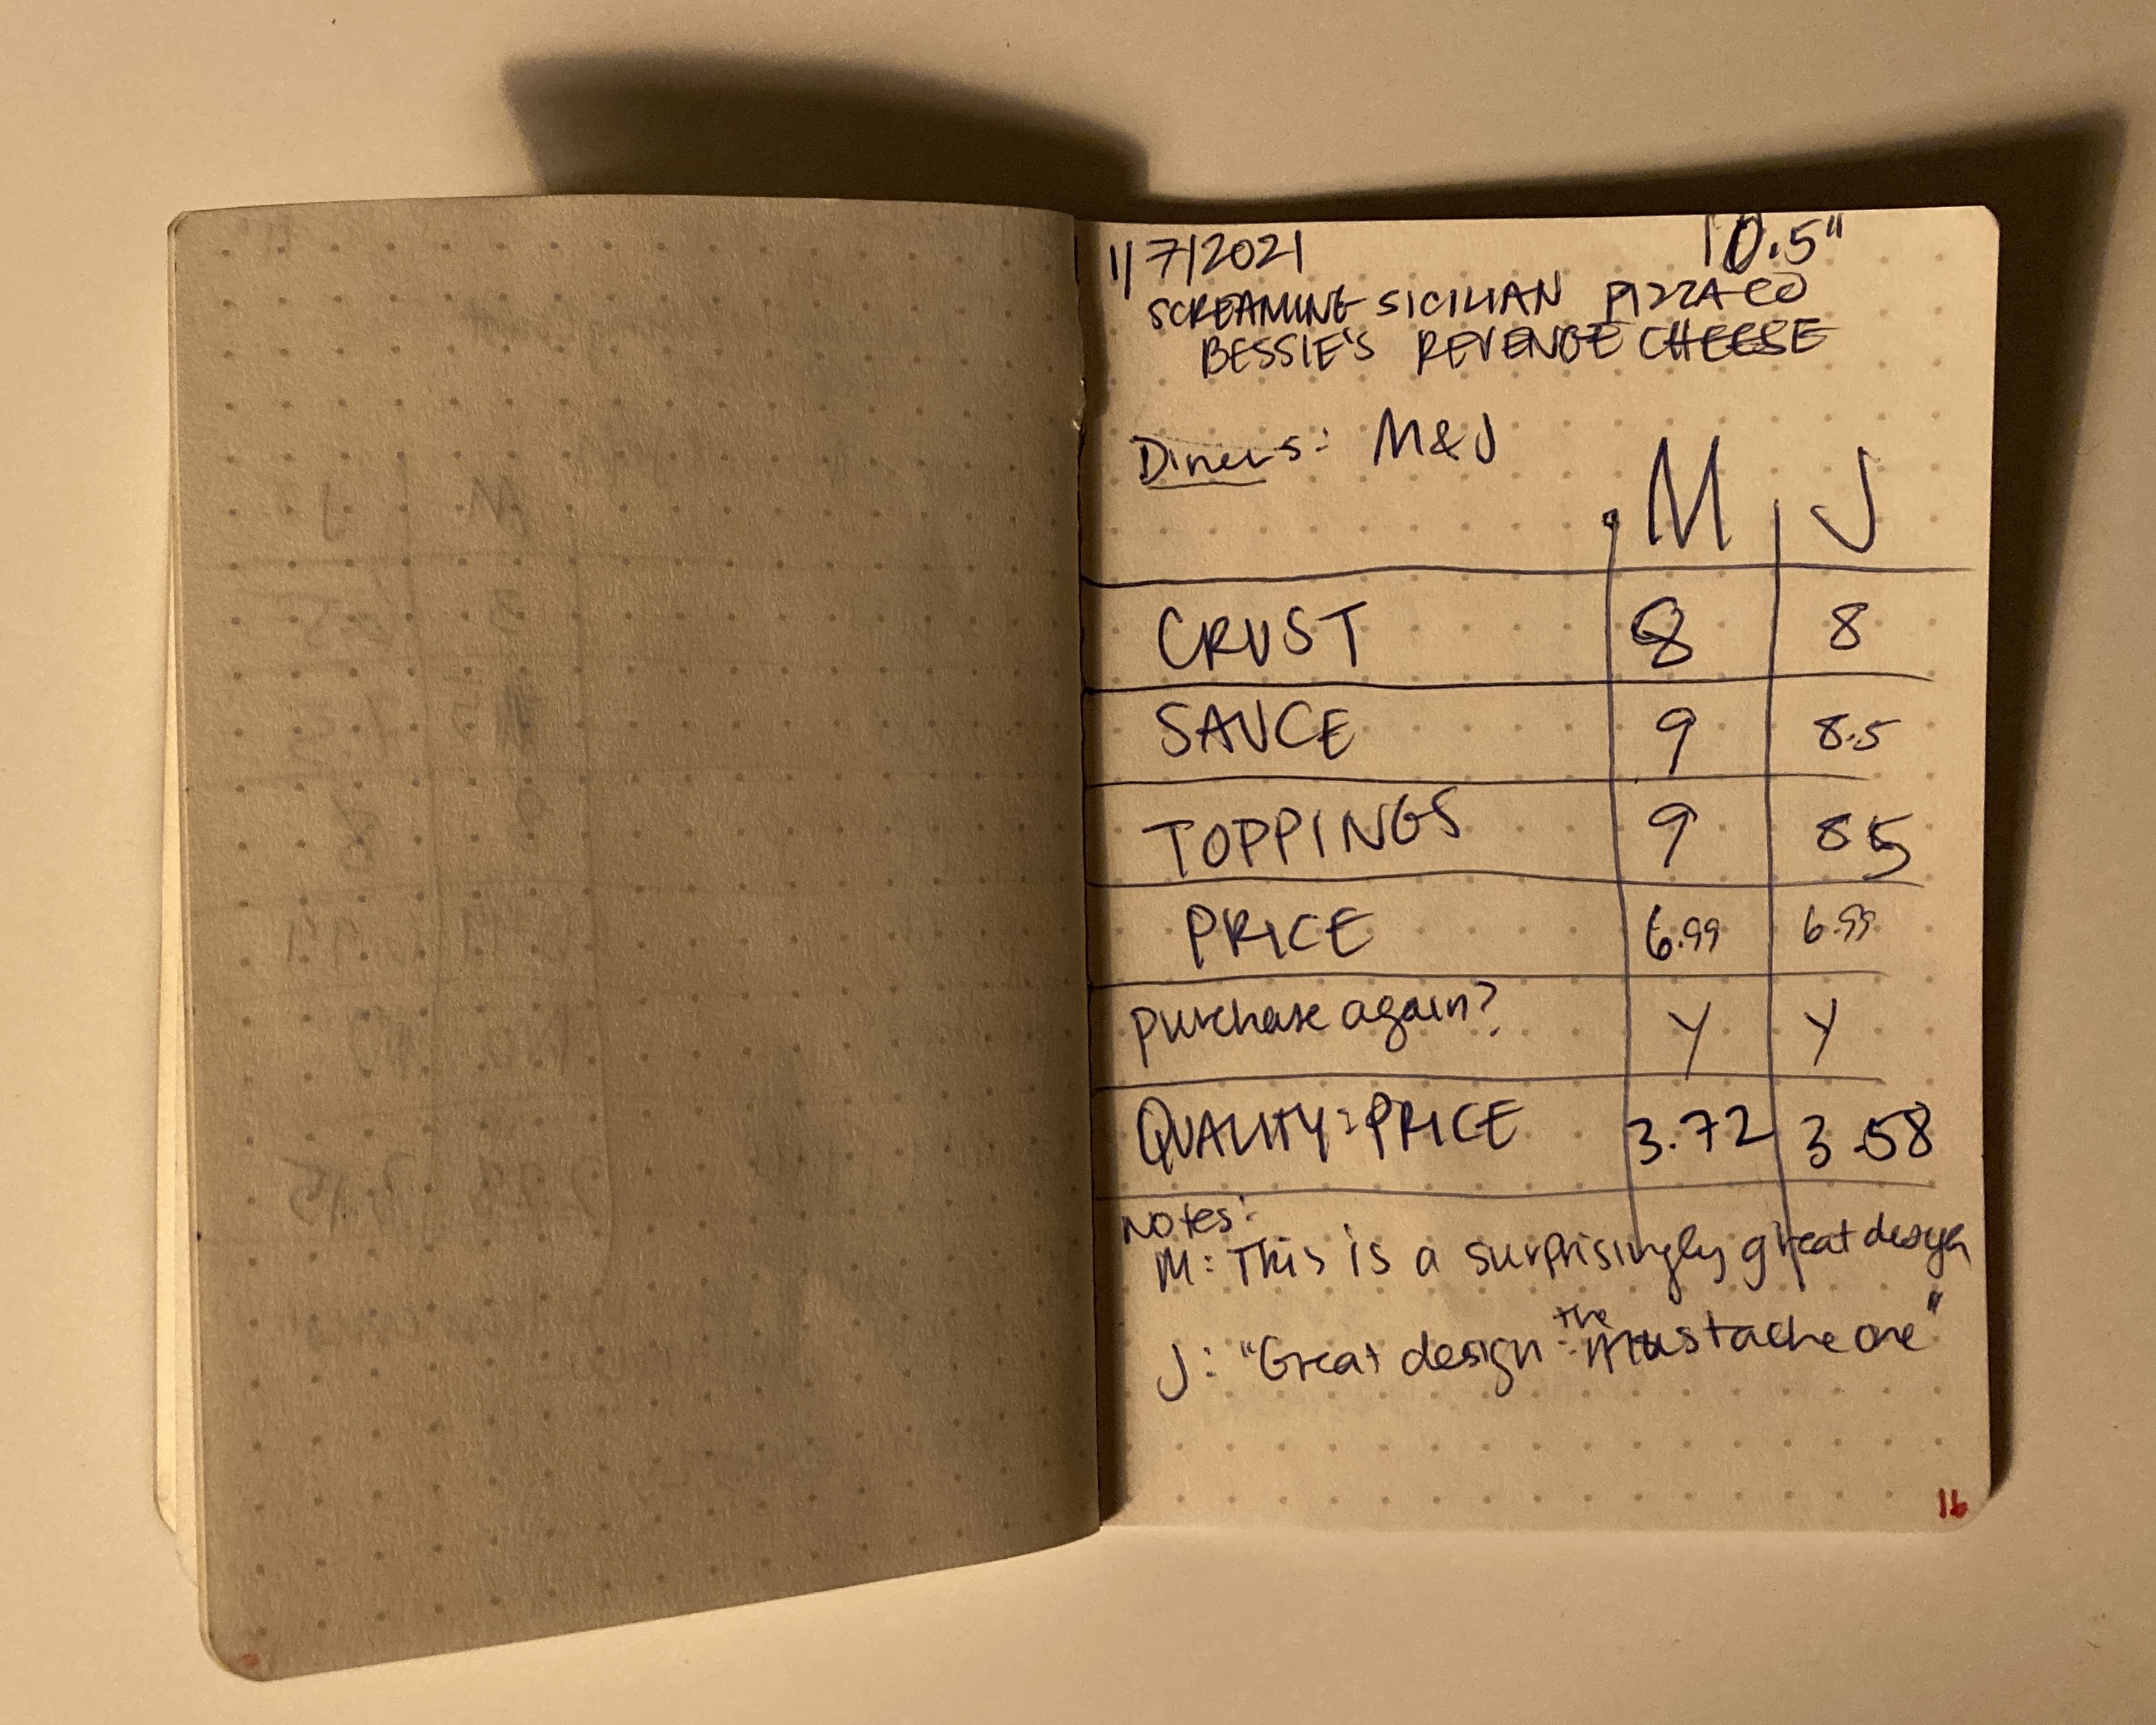 1/7/2021 10.5"
SCREAMING SICILIAN PIZZA CO
BESSIE'S REVENGE CHEESE
Diners: M&J
M J
CRUST 8 8
SAUCE 9 8.5
TOPPINGS 9 8.5
PRICE 6.99 6.99
purchase again? Y Y
QUALITY:PRICE 3.72 3.58
Notes:
M: This is a surprisingly great design
J: "Great design: the mustache one"
16